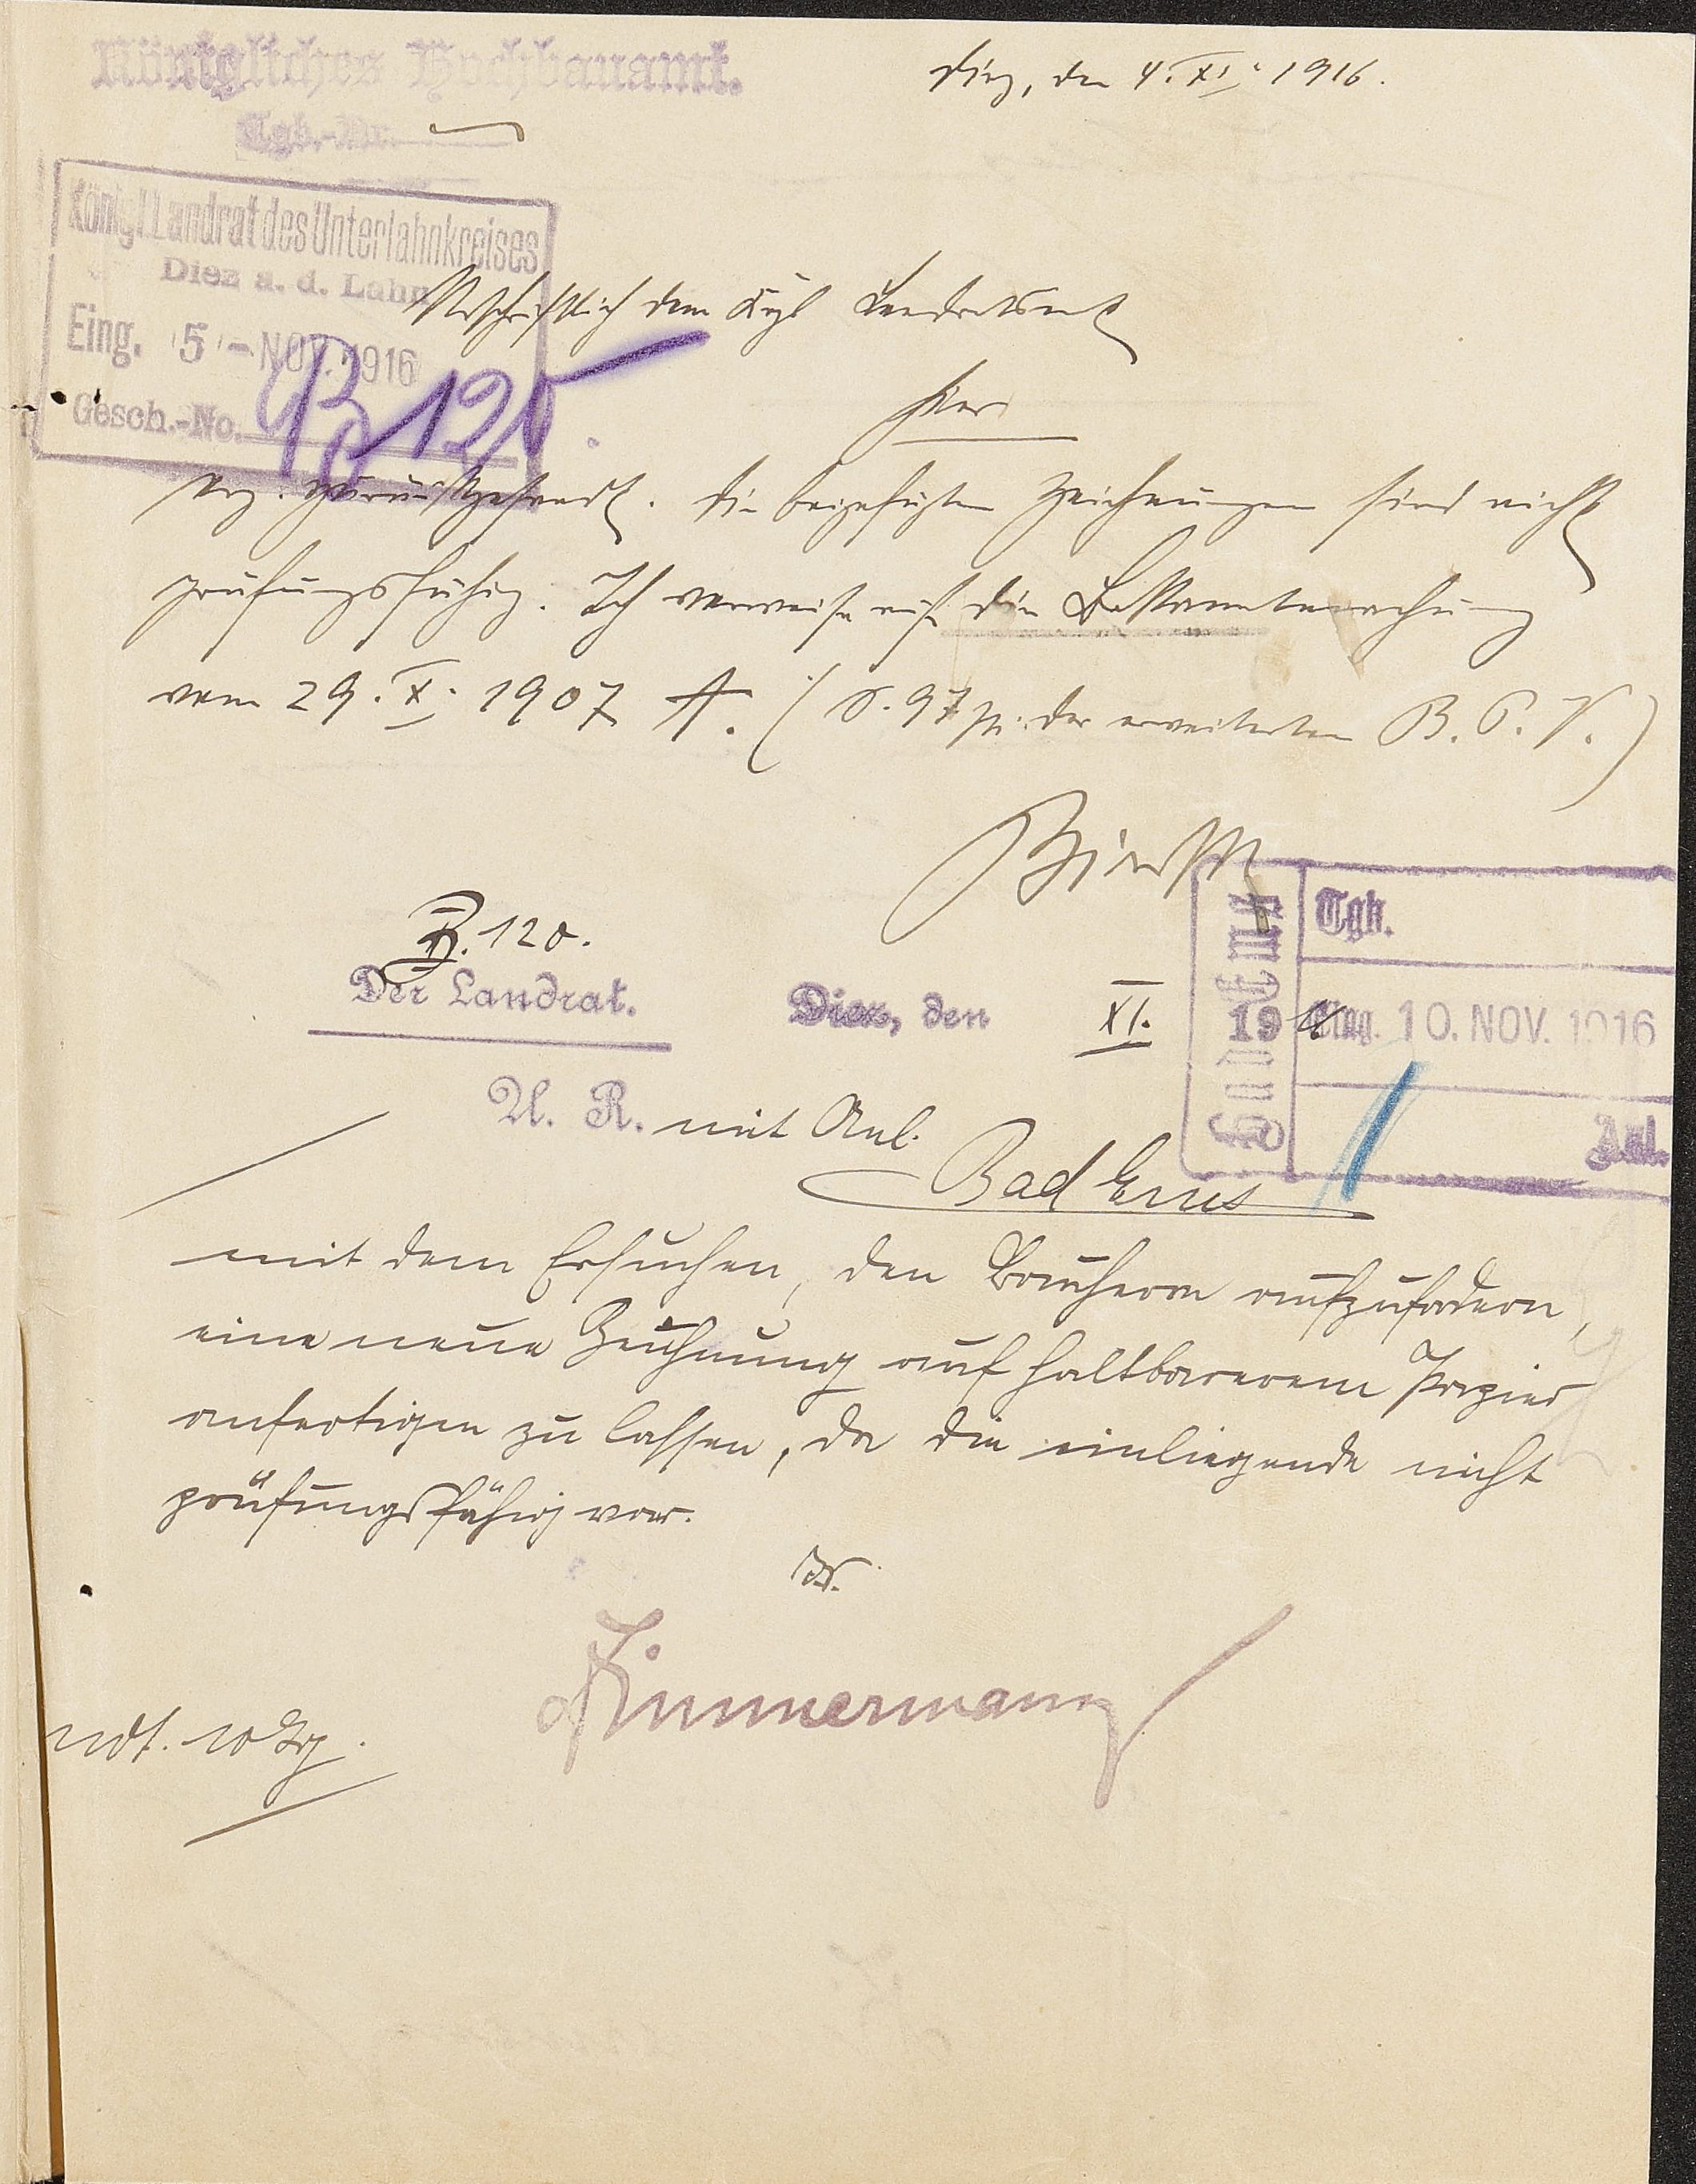 Königliches Hochbauamt.
Diez, den 4. XI. 1916.
Tgb.-Nr.
Königl. Landrat des Unterlahnkreises
Diez a. d. Lahn
Eing. 5 - NOV. 1916
Gesch.-No. B 120
Urschriftlich dem Kgl Landratsamt
hier
erg. zurückgesandt. Die beigefügten Zeichnungen sind nicht
prüfungsfähig. Ich verweise auf die Bekanntmachung
vom 29. X. 1907 A. (S. 97 der erweiterten B. P. V.)
B. 120.
Der Landrat.
Diez, den XI. 19
Tgb.
Eing. 10. NOV. 1916
Anl.
Bad Ems
U. R. mit Anl.
Bad Ems
mit dem Ersuchen, den Bauherrn aufzufordern,
eine neue Zeichnung auf haltbarerem Papier
anfertigen zu lassen, da die einliegende nicht
prüfungsfähig war.
Zimmermann